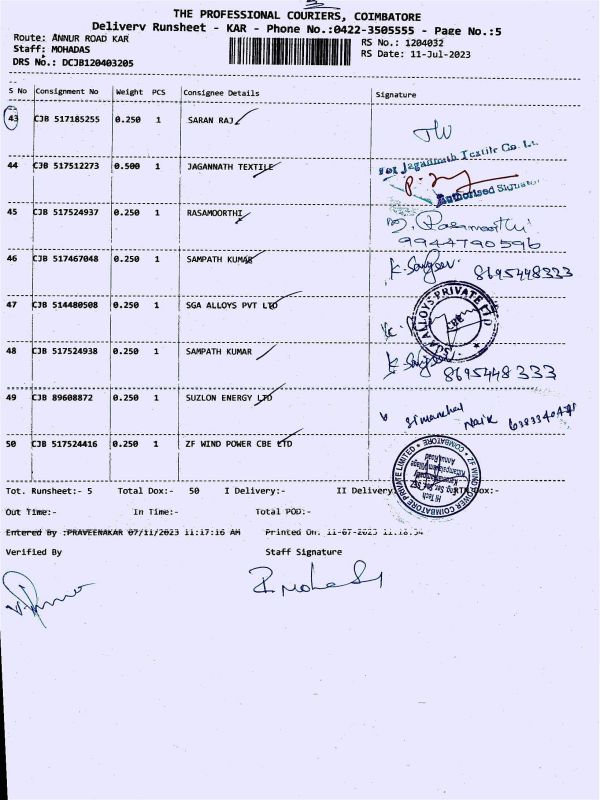 THE PROFESSIONAL COURIERS, COIMBATORE
Delivery Runsheet - KAR - Phone No.:0422-3505555 - Page No.:5
Route: ANNUR ROAD KAR
RS No.: 1204032
Staff: MOHADAS
RS Date: 11-Jul-2023
DRS No.: DCJB120403205
S No Consignment No Weight PCS Consignee Details Signature
43 CJB 517185255 0.250 1 SARAN RAJ
44 CJB 517512273 0.500 1 JAGANNATH TEXTILE
For Jagannath Textile Co. Lt.
Authorised Signator
45 CJB 517524937 0.250 1 RASAMOORTHI
Rasamoorthi
9944790596
46 CJB 517467048 0.250 1 SAMPATH KUMAR
8695448333
47 CJB 514480508 0.250 1 SGA ALLOYS PVT LTD
SGA ALLOYS PRIVATE LTD
CBE
48 CJB 517524938 0.250 1 SAMPATH KUMAR
8695448333
49 CJB 89608872 0.250 1 SUZLON ENERGY LTD
Naik
50 CJB 517524416 0.250 1 ZF WIND POWER CBE LTD
ZF WIND POWER COIMBATORE PRIVATE LIMITED • COIMBATORE
Hi Tech
Annur Road
Tot. Runsheet:- 5 Total Dox:- 50 I Delivery:- II Delivery
Out Time:- In Time:- Total POD:-
Entered By :PRAVEENAKAR 07/11/2023 11:17:16 AM Printed On: 11-07-2023 11:18:54
Verified By Staff Signature